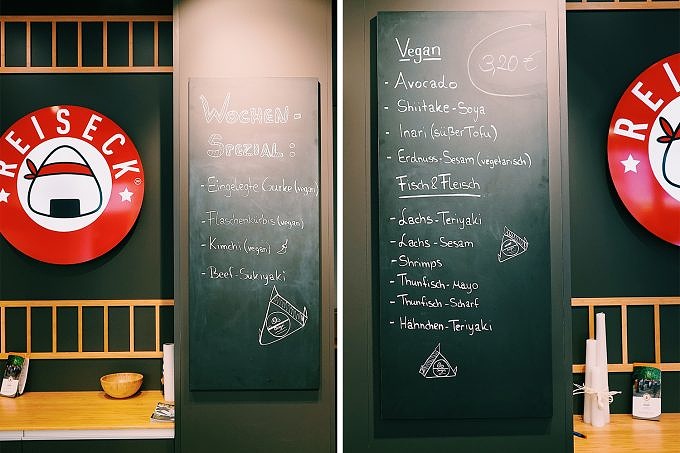 REISECK
WOCHEN-
SPEZIAL:
- Eingelegte Gurke (vegan)
- Flaschenkürbis (vegan)
- Kimchi (vegan)
- Beef-Sukiyaki
Vegan
3,20 €
- Avocado
- Shiitake-Soya
- Inari (süßer Tofu)
- Erdnuss-Sesam (vegetarisch)
Fisch & Fleisch
- Lachs-Teriyaki
- Lachs-Sesam
- Shrimps
- Thunfisch-Mayo
- Thunfisch-Scharf
- Hähnchen-Teriyaki
REIS